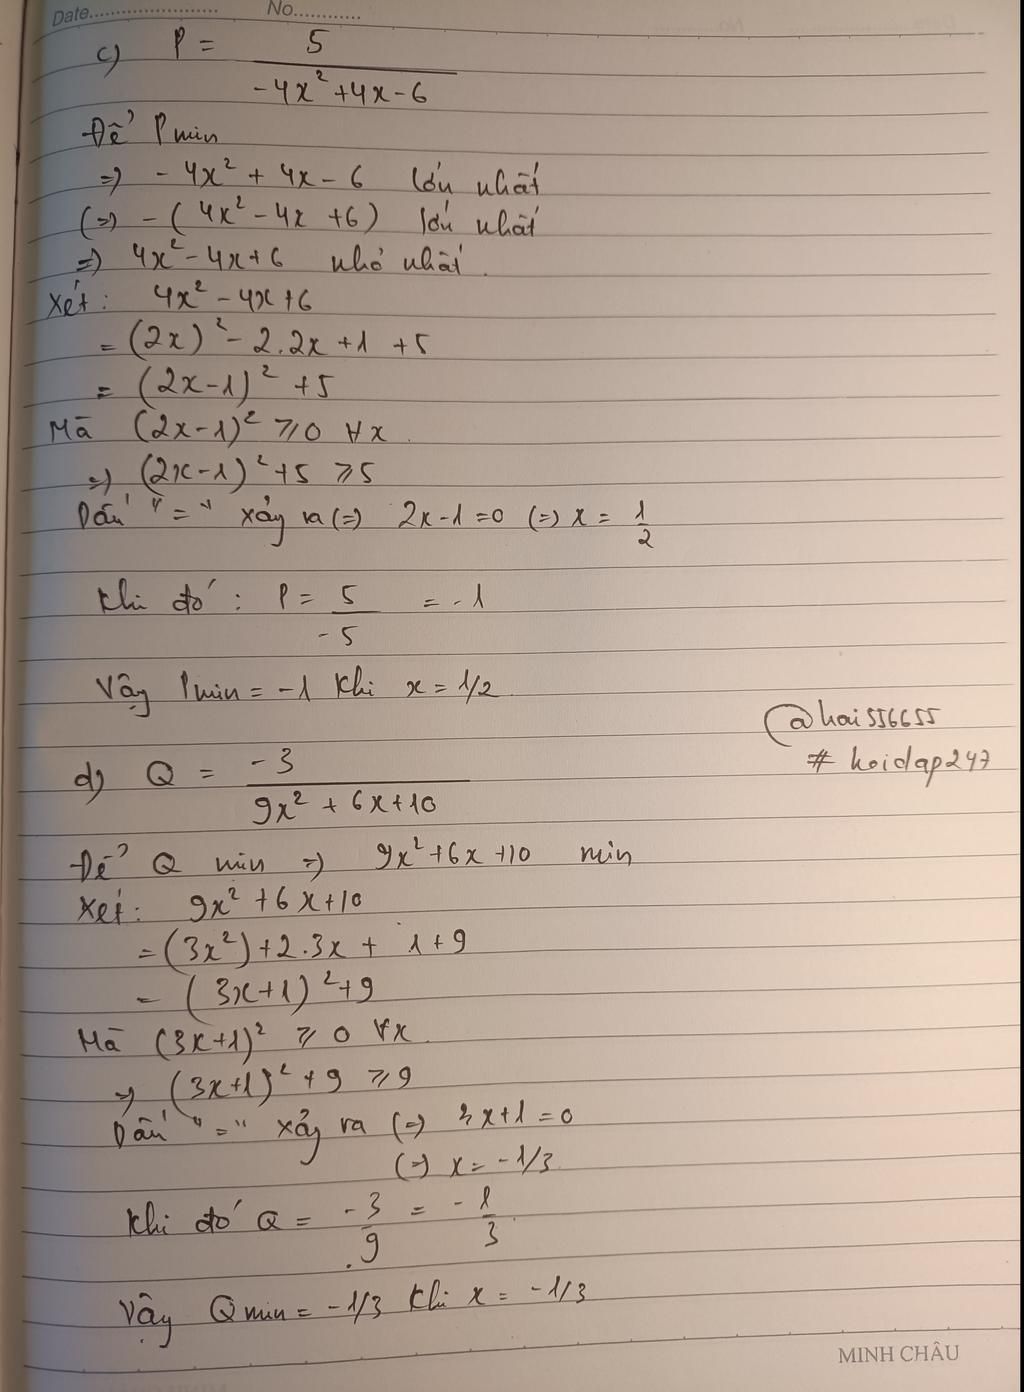 Date....................... No............
c) P = 5 / -4x² + 4x - 6
Để P min
=> - 4x² + 4x - 6 lớn nhất
(=) - ( 4x² - 4x + 6 ) lớn nhất
=> 4x² - 4x + 6 nhỏ nhất.
Xét : 4x² - 4x + 6
= (2x)² - 2.2x + 1 + 5
= (2x - 1)² + 5
Mà (2x - 1)² ⩾ 0 ∀x.
=> (2x - 1)² + 5 ⩾ 5
Dấu "=" xảy ra (=) 2x - 1 = 0 (=) x = 1/2
Khi đó : P = 5/-5 = -1
Vậy Pmin = -1 khi x = 1/2
@hai556655
# hoidap247
d) Q = -3 / 9x² + 6x + 10
Để Q min => 9x² + 6x + 10 min
Xét : 9x² + 6x + 10
= (3x²) + 2.3x + 1 + 9
= (3x + 1)² + 9
Mà (3x + 1)² ⩾ 0 ∀x.
=> (3x + 1)² + 9 ⩾ 9
Dấu "=" xảy ra (=) 3x + 1 = 0
(=) x = -1/3.
Khi đó Q = -3/9 = -1/3.
Vậy Q min = -1/3 khi x = -1/3
MINH CHÂU